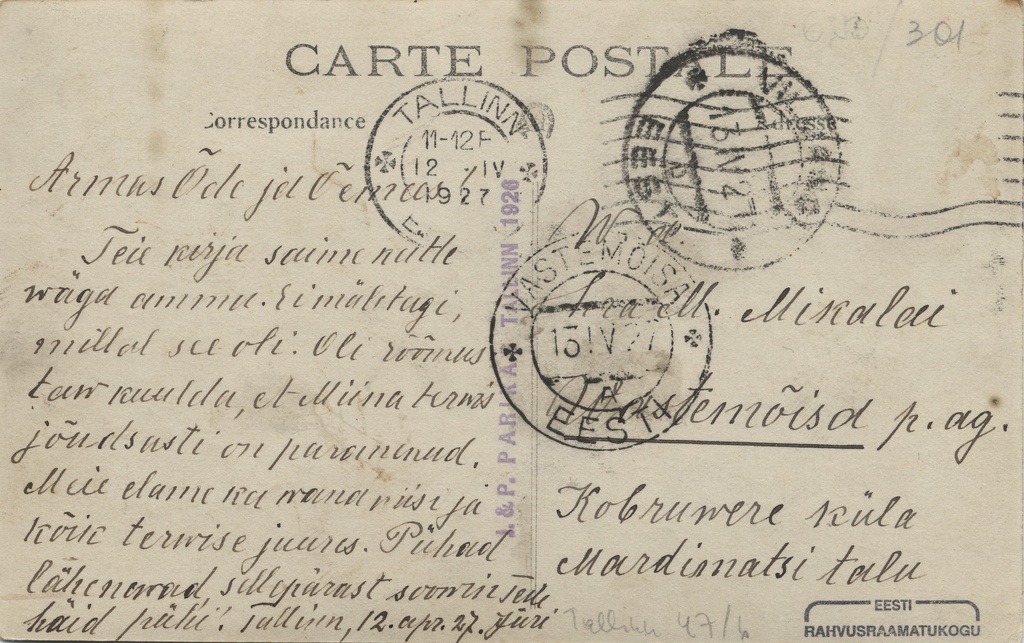 301
CARTE POSTALE
Correspondance
Adresse
TALLINN
11-12
12 IV
1927
VILJANDI
EESTI
13 IV 27
Armas Õde ja Õemees
Teie kirja saime kätte
wäga ammu. Ei mäletagi,
millal see oli. Oli rõõmus-
taw kuulda, et Miina terwis
jõudsasti on paranenud.
Meie elame ka wana wiisi ja
kõik terwise juures. Pühad
lähenewad, sellepärast soowin Teile
häid pühi! Tallinn, 12. apr. 27. Jüri
J. & P. PARIKAS TALLINN 1926
VASTEMÕISA
13 IV 27
EESTI
M. Mikalai
Wastemõisa p. ag.
Kobruwere küla
Mardimatsi talu
Tallinn 47/
EESTI
RAHVUSRAAMATUKOGU